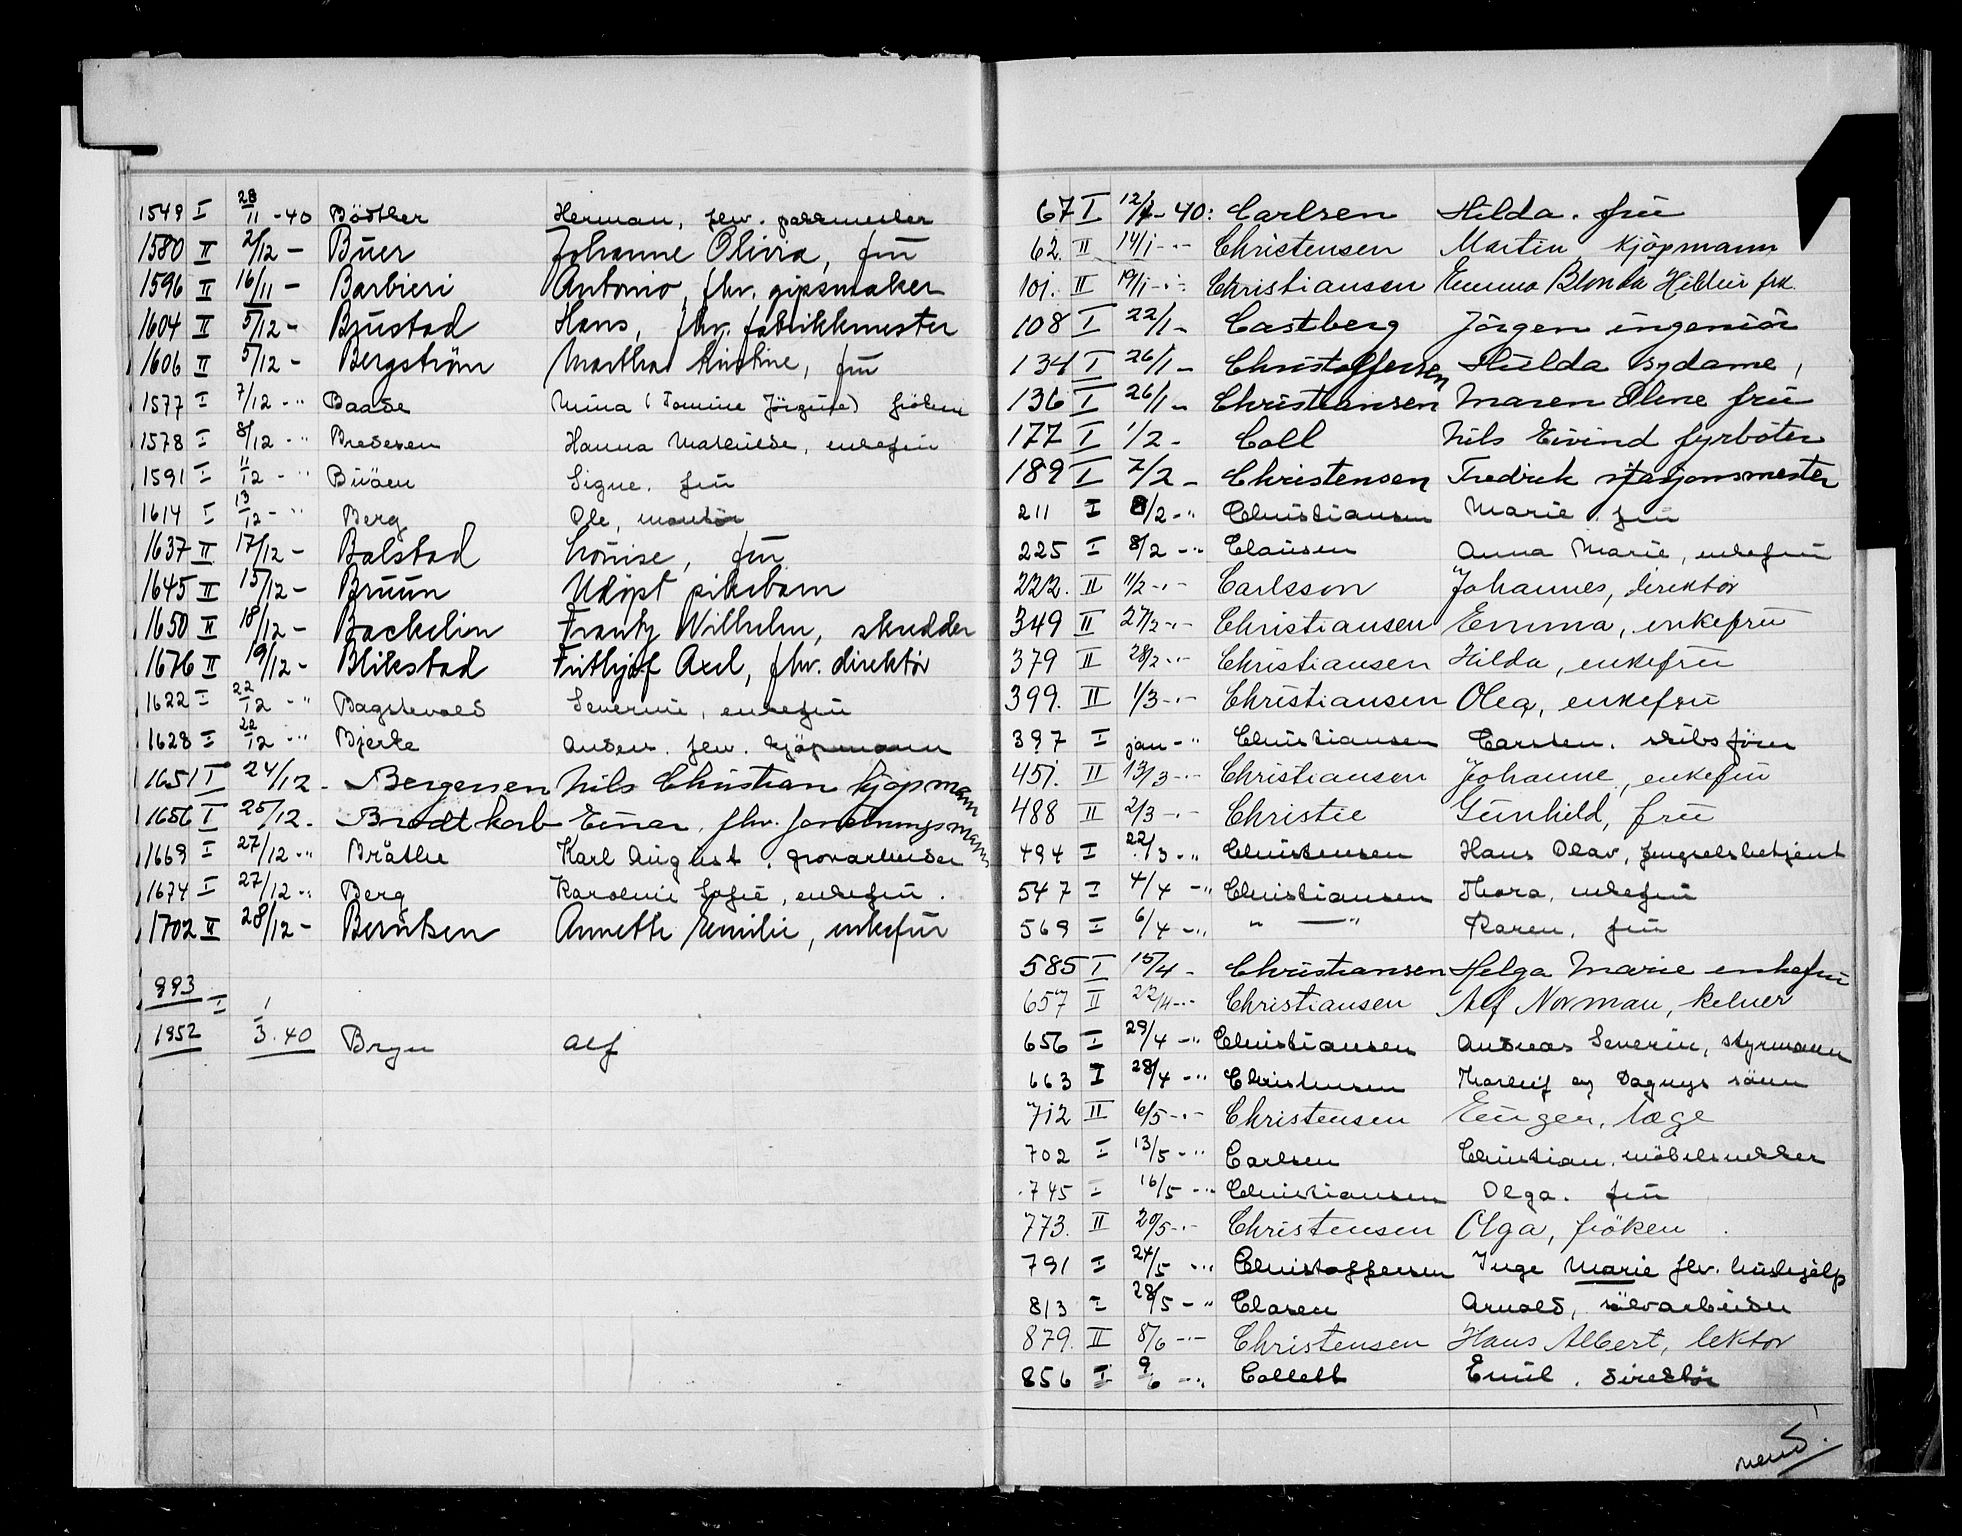 1549 I 28/11 -40 Bödtker Herman, fhv. pakkmester
1580 II 2/12 - Buer Johanne Olivia, frü
1596 II 16/11 - Barbieri Antonio, fhv. gipsmaker
1604 II 5/12 - Brustad Hans, fhv. fabrikkmester
1606 II 5/12 - Bergström Marthea Kirstine, frü
1577 I 7/12 - " Baade Mina (Tomine Jörgine) fröken
1578 I 8/12 - " Bredesen Hanna Mathilde, enkefrü
1591 I 11/12 - " Büöen Signe. frü
1614 I 13/12 - " Berg Ole, montör
1637 II 17/12 - Balstad Lovise, frü
1645 II 15/12 - Bruun Udöpt pikebarn
1650 II 18/12 - Backelin Frantz Wilhelm, skredder
1676 II 19/12 - Blikstad Frithjof Axel, fhv. direktör
1622 I 22/12 - " Bagstevold Severine, enkefrü
1628 I 22/12 - " Bjerke Anders. fhv. kjöpmann
1651 I 24/12. - Bergersen Nils Christian kjöpmann
1656 I 25/12. - Brodtkorb Einar. fhv. forretningsmann
1669 I 27/12 - " Bråthe Karl August. grovarbeider
1674 I 27/12 - " Berg Karoline Sofie, enkefrü.
1702 II 28/12 - Berntsen Annette Emilie, enkefrü
993 I
1952 1/3. 40 Bryn Alf
67 I 12/1 - 40: Carlsen Hilda. frü
62. II 14/1 - " - Christensen Martin kjöpmann
101. II 19/1 - " - Christiansen Emma Blonda Hildur frk.
108 I 22/1 - Castberg Jörgen ingeniör
134 I 26/1 - Christoffersen Hulda sydame,
136 I 26/1 - Christiansen Maren Oline frü
177 I 1/2 - Coll Nils Eivind fyrböter
189 I 7/2 - Christensen Fredrik stasjonsmester
211 I 8/2 - " Christiansen Marie. frü
225 I 8/2 - " Clausen Anna Marie, enkefrü
222. II 11/2 - " - Carlsson Johannes, direktör
349 II 27/2 - " - Christiansen Emma, enkefrü
379 II 28/2 - " - Christiansen Hilda, enkefrü
399. II 1/3 - " - Christiansen Olea, enkefrü
397 I jan - " Christiansen Carsten. skibsförer
451. II 13/3 - " - Christiansen Johanne, enkefrü
488 II 2/3 - " - Christie Gunhild, frü
494 I 22/3 - " Christensen Hans Olav, fengselsbetjent
547 I 4/4 - " Christiansen Thora, enkefrü
569 I 6/4 - " " — " Karen, frü
585 I 15/4 - Christiansen Helga Marie enkefrü
657 II 22/4 - " - Christiansen Alf Norman, kelner
656 I 29/4 - " Christiansen Andreas Severin, styrmann
663 I 28/4 - " Christensen Thorleif og Dagnys sönn
712 II 6/5 - " - Christensen Eugen, læge
702 I 13/5 - " Carlsen Christian. möbelsnekker
745 I 16/5 - " Christiansen Olga. frü
773. II 20/5 - " - Christensen Olga, fröken
791 I 24/5 - " Christoffersen Inga Marie fhv. hushjelp
813 I 28/5 - " Clasen Arnold, sölvarbeider
879. II 8/6 - " - Christensen Hans Albert, lektor
856 I 9/6 - " Collett Emil. direktör
vend!